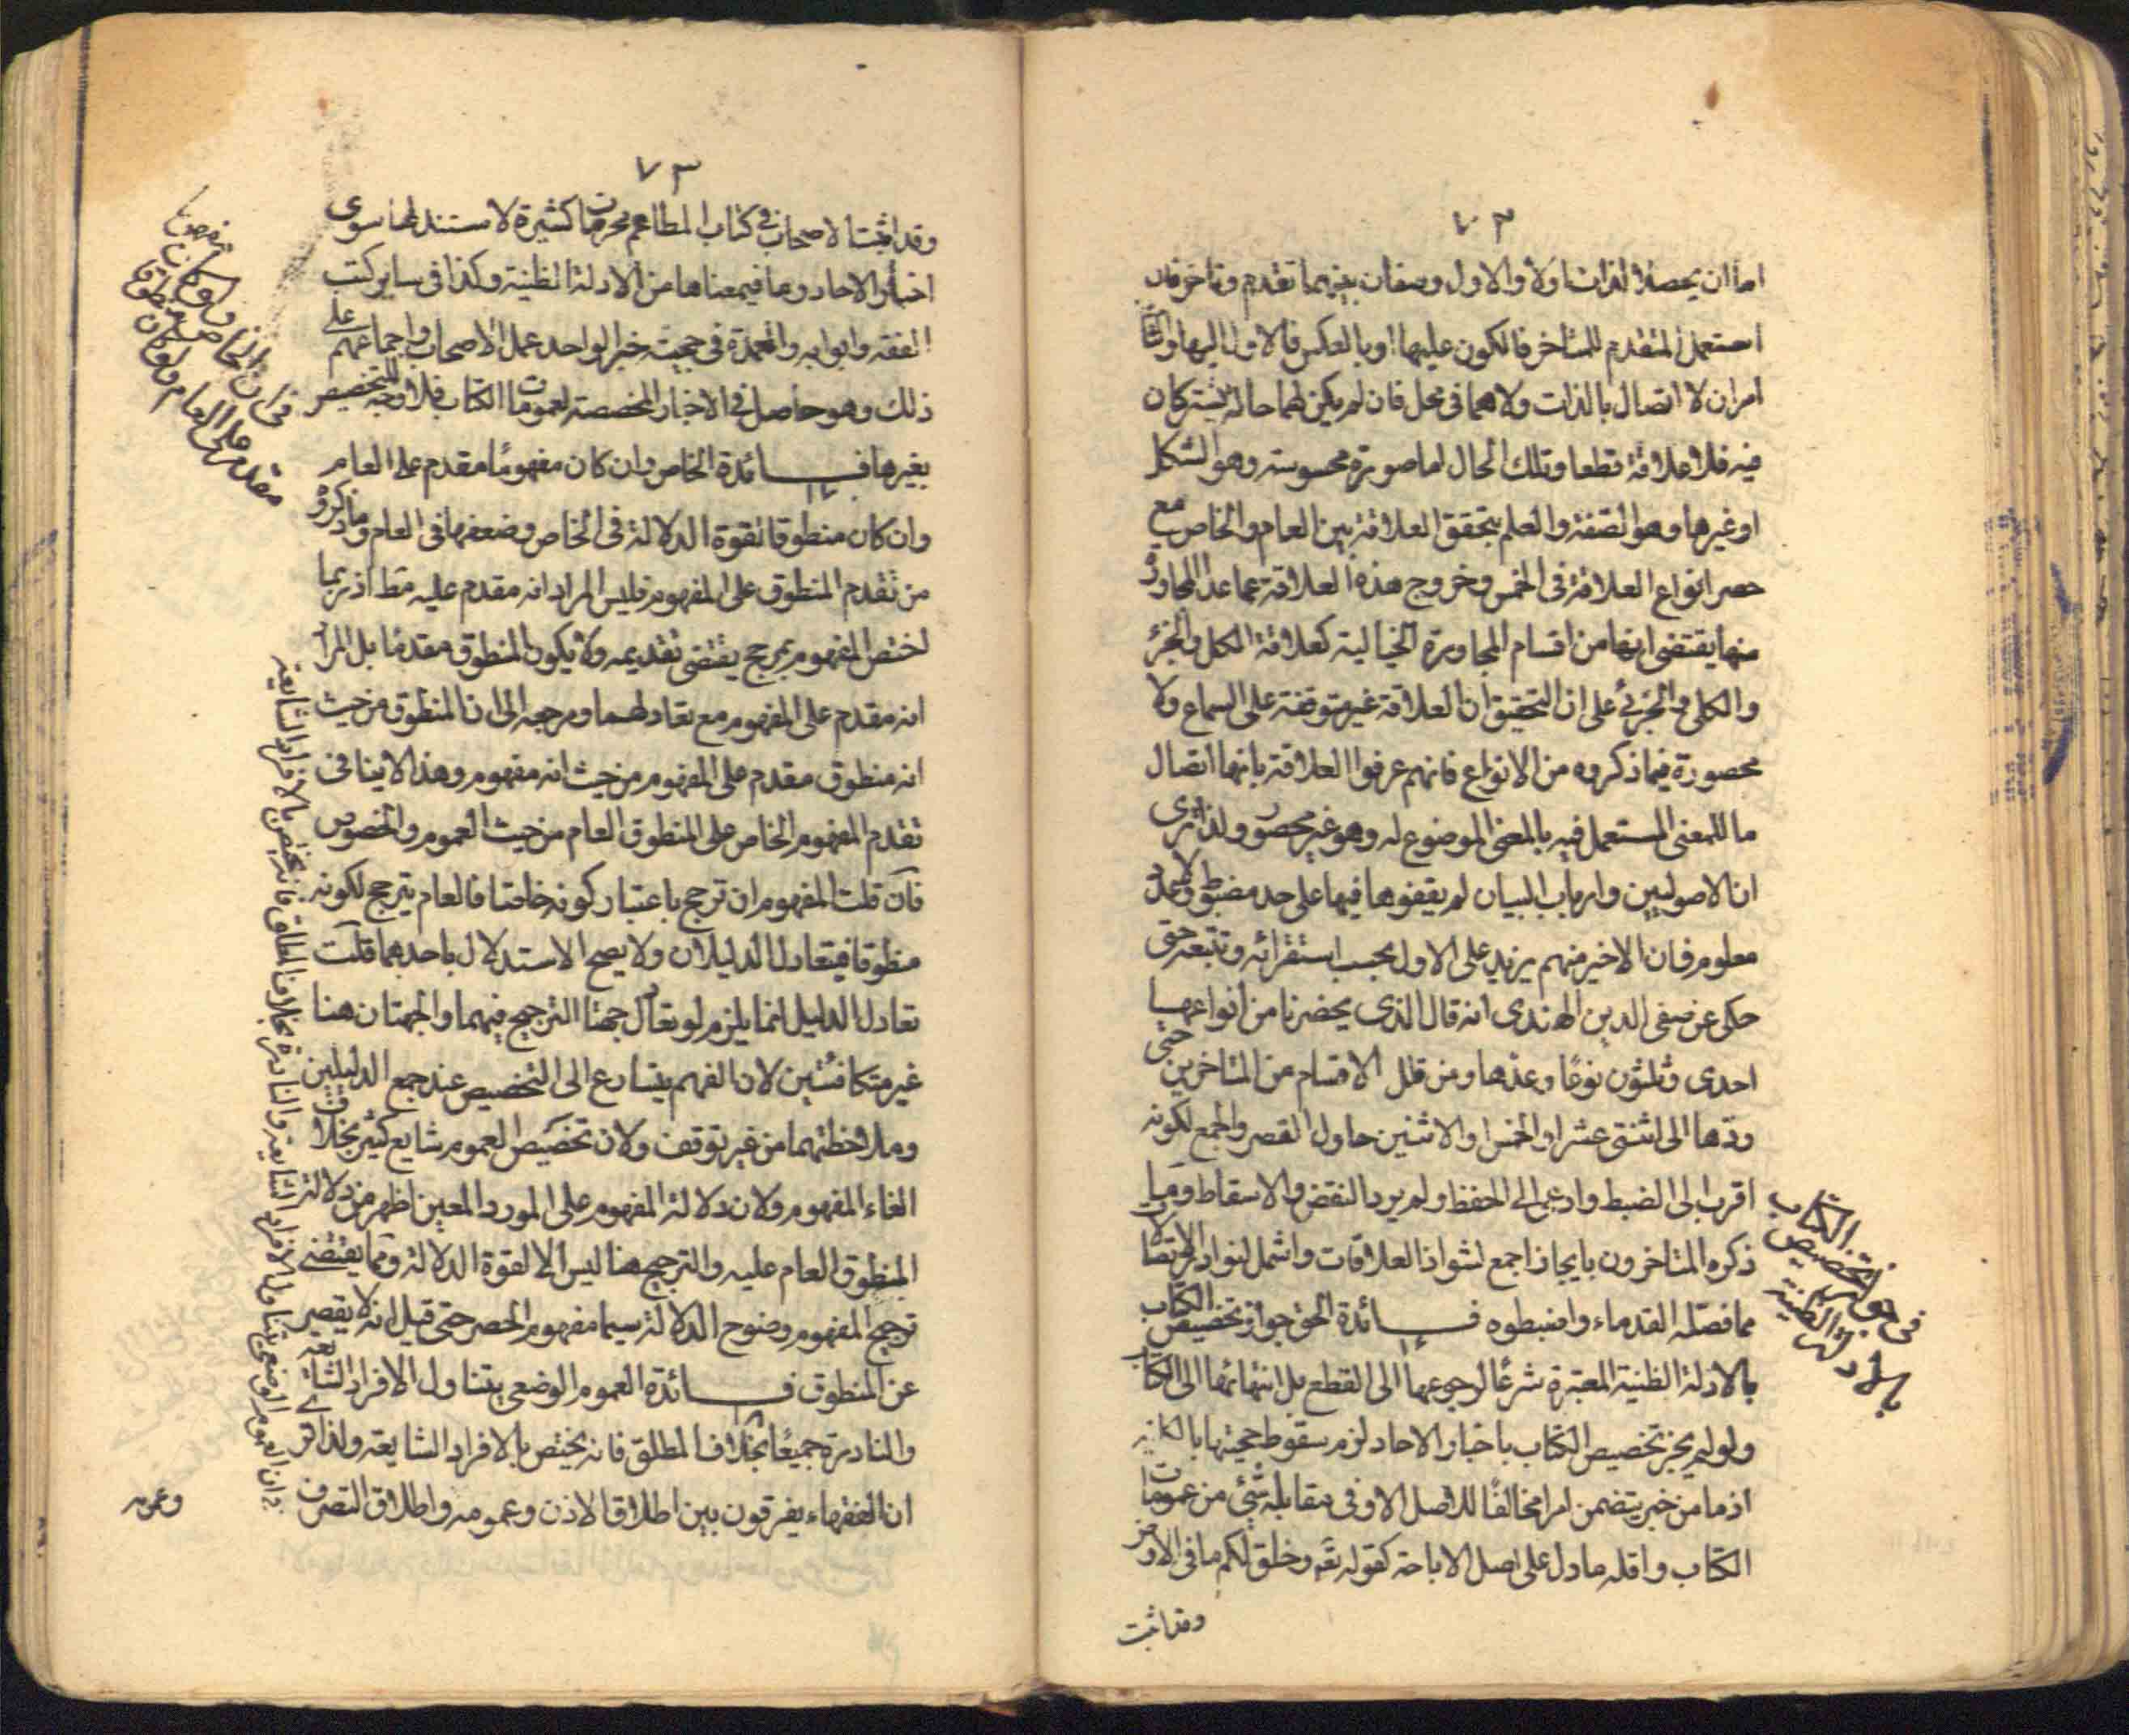 ٧٢
اما ان يحصلا لذات اولا والاول وصفان بينهما تقدم وتاخر فان
استعمل المتقدم للمتاخر فالكون عليها او بالعكس فالاول اليها والثا
امران لا اتصال بالذات ولا هما فى محل فان لم يكن لهما حالة يشتركان
فيه فلا علاقة قطعا وتلك الحال اما صورة محسوسة وهو الشكل
او غيرها وهو الصفة والعلم بتحقق العلاقة بين العام والخاص مع
حصر انواع العلاقة فى الخمس وخروج هذه العلاقة عما عدا المجاورة
منها يقتضى انها من اقسام المجاورة الخيالية كعلاقة الكل والجزء
والكلى والجزئى على ان التحقيق ان العلاقة غير متوقفة على السماع ولا
محصورة فيما ذكروه من الانواع فانهم عرفوا العلاقة بانها اتصال
ما للمعنى المستعمل فيه بالمعنى الموضوع له وهو غير محصور ولذا ترى
ان الاصوليين وارباب البيان لم يقفوها فيها على حد مضبوط ولا عدد
معلوم فان الاخير منهم يزيد على الاول بحسب استقرائه وتتبعه حتى
حكى عن صفى الدين الهندى انه قال الذى يحضرنا من انواعها
احدى وثلثون نوعًا وعدها ومن قلل الاقسام من المتاخرين حتى
ردها الى اثنتى عشر او الخمس او الاثنين حاول القصر والجمع لكونه
اقرب الى الضبط وادعى الى الحفظ ولم يرد النقض والاسقاط وما
ذكره المتاخرون بايجاز اجمع لشواذ العلاقات واشمل لنوادر الاتصالات
مما فصله القدماء واضبطوه فــائدة الحق جواز تخصيص الكتاب
بالادلة الظنية المعتبرة شرعًا لرجوعها الى القطع بل انتهائها الى الكتاب
ولو لم يجز تخصيص الكتاب باخبار الاحاد لزم سقوط حجيتها بالكلية
اذ ما من خبر يتضمن امرا مخالفًا للاصل الا وفى مقابله شئ من عمومات
الكتاب واقله ما دل على اصل الاباحة كقوله تع وخلق لكم ما فى الارض
وقد اثبت
فى جواز تخصيص الكتاب
بالادلة الظنية
٧٣
وقد اثبتا لاصحاب فى كتاب المطاعم محرمات كثيرة لا مستند لها سوى
اخبار الاحاد وما فيمعناها من الادلة الظنية وكذا فى ساير كتب
الفقه وابوابه والعمدة فى حجية خبر الواحد عمل الاصحاب واجماعهم على
ذلك وهو حاصل فى الاخبار المخصصة لعمومات الكتاب فلا وجه للتخصيص
بغيرها فــائدة الخاص وان كان مفهومًا مقدم على العام
وان كان منطوقا لقوة الدلالة فى الخاص وضعفها فى العام وما ذكروه
من تقدم المنطوق على المفهوم فليس المراد انه مقدم عليه مط اذ ربما
اختص المفهوم بمرجح يقتضى تقديمه ولا يكون المنطوق مقدمًا بل المراد
انه مقدم على المفهوم مع تعادلهما ومرجعه الى ان المنطوق من حيث
انه منطوق مقدم على المفهوم من حيث انه مفهوم وهذا لا ينافى
تقدم المفهوم الخاص على المنطوق العام من حيث العموم والخصوص
فان قلت المفهوم ان ترجح باعتبار كونه خاصا فالعام يترجح لكونه
منطوقا فيتعادل الدليلان ولا يصح الاستدلال باحدهما قلت
تعادل الدليل انما يلزم لو تعادل جهتا الترجيح فيهما والجهتان هنا
غير متكافئتين لان الفهم يتسارع الى التخصيص عند جمع الدليلين
وملاحظتهما من غير توقف ولان تخصيص العموم شايع كثير بخلاف
الغاء المفهوم ولان دلالة المفهوم على المورد المعين اظهر من دلالة
المنطوق العام عليه والترجيح هنا ليس الا لقوة الدلالة ومما يقتضى
ترجيح المفهوم وضوح الدلالة سيما مفهوم الحصر حتى قيل انه لا يقصر
عن المنطوق فــائدة العموم الوضعى يتناول الافراد الشايعة
والنادرة جميعًا بخلاف المطلق فانه يختص بالافراد الشايعة ولذا ترى
ان الفقهاء يفرقون بين اطلاق الاذن وعمومه واطلاق التصرف
وعمومه
فى ان الخاص ولو كان مفهوما
مقدم على العام ولو كان منطوقا
فى ان العموم الوضعى يتناول الافراد الشايعة والنادرة بخلاف المطلق فانه يختص بالافراد الشايعة